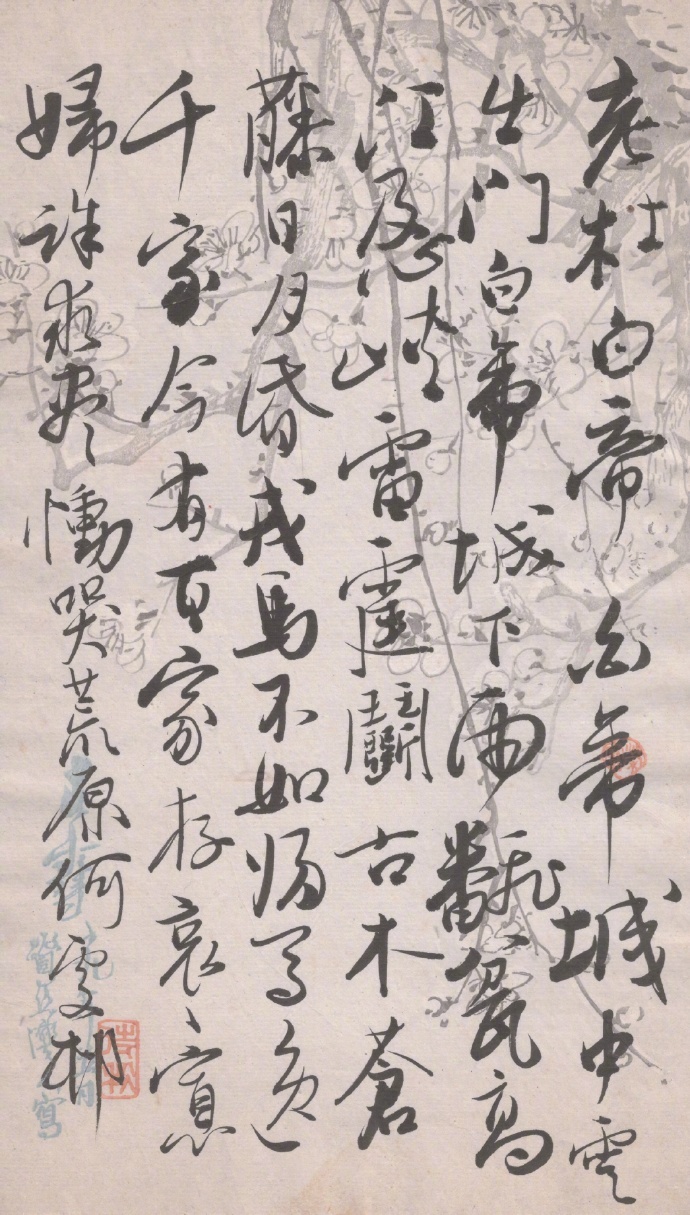 老杜白帝 白帝城中雲
出門白帝城下雨翻瓮高
江急峽雷霆鬭古木蒼
藤日月昏戎馬不如归马逸
千家今有百家存哀〻寡
婦誅求盡〻慟哭荒原何處村